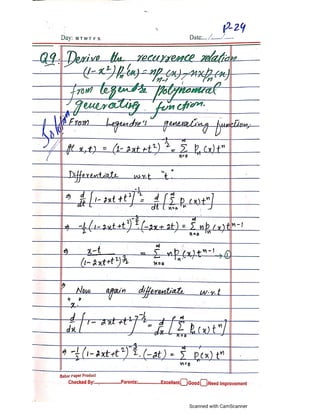 P-24
Day: M T W T F S Date: / /
Q9: Derive the recurrence relation
(1-x²)Pₙ'(x) = nPₙ₋₁(x) - nxPₙ(x)
from legendre polynomial
generating function.
Solution
From Legendre's generating function,
g(x,t) = (1-2xt+t²)^{-1/2} = Σ_{n=0}^{∞} Pₙ(x)tⁿ
Differentiate w.r.t "t"
⇒ d/dt [1-2xt+t²]^{-1/2} = d/dt [Σ_{n=0}^{∞} Pₙ(x)tⁿ]
⇒ -1/2 (1-2xt+t²)^{-3/2} (-2x+2t) = Σ_{n=0}^{∞} nPₙ(x)t^{n-1}
⇒ x-t / (1-2xt+t²)^{3/2} = Σ_{n=0}^{∞} nPₙ(x)t^{n-1} → ①
Now again differentiate w.r.t
"x"
d/dx [1-2xt+t²]^{-1/2} = d/dx [Σ_{n=0}^{∞} Pₙ(x)tⁿ]
⇒ -1/2 (1-2xt+t²)^{-3/2} · (-2t) = Σ_{n=0}^{∞} Pₙ'(x)tⁿ
Paper Product
Checked By: Parents: Excellent Good Need Improvement
Scanned with CamScanner